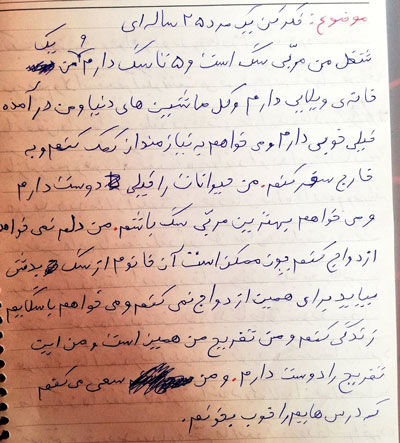 موضوع: فکر کن یک مرد ۲۵ ساله ای
شغل من مربی سگ است و ۵ تا سگ دارم و من یک
خانه ی ویلایی دارم و کل ماشین های دنیا و من درآمده
خیلی خوبی دارم و می خواهم به نیازمندان کمک کنم و به
خارج سفر کنم. من حیوانات را خیلی دوست دارم
و می خواهم بهترین مربی سگ باشم. من دلم نمی خواهد
ازدواج کنم چون ممکن است آن خانوم از سگ بدش
بیاید برای همین ازدواج نمی کنم و می خواهم با سگهایم
زندگی کنم و من تفریح من همین است و من این
تفریح را دوست دارم. و من سعی می کنم
که درس هایم را خوب بخونم.